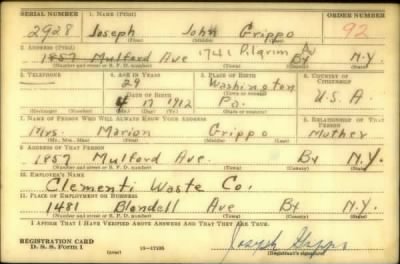 SERIAL NUMBER 1. NAME (Print) ORDER NUMBER
2928 Joseph John Grippo 92
2. ADDRESS (Print) 1741 Pilgrim Av
1857 Mulford Ave Bx N.Y.
(Number and street or R. F. D. number) (Town) (County) (State)
3. TELEPHONE 4. AGE IN YEARS 5. PLACE OF BIRTH 6. COUNTRY OF CITIZENSHIP
29 Washington
DATE OF BIRTH (Town or county)
4 17 1912 Pa. U.S.A.
(Exchange) (Number) (Mo.) (Day) (Yr.) (State or country)
7. NAME OF PERSON WHO WILL ALWAYS KNOW YOUR ADDRESS 8. RELATIONSHIP OF THAT PERSON
Mrs. Marion Grippo Mother
(Mr., Mrs., Miss) (First) (Middle) (Last)
9. ADDRESS OF THAT PERSON
1857 Mulford Ave. Bx N.Y.
(Number and street or R. F. D. number) (Town) (County) (State)
10. EMPLOYER'S NAME
Clementi Waste Co.
11. PLACE OF EMPLOYMENT OR BUSINESS
1481 Blondell Ave Bx N.Y.
(Number and street or R. F. D. number) (Town) (County) (State)
I AFFIRM THAT I HAVE VERIFIED ABOVE ANSWERS AND THAT THEY ARE TRUE.
REGISTRATION CARD
D. S. S. Form 1 (over) 16—17105 Joseph Grippo
(Registrant's signature)